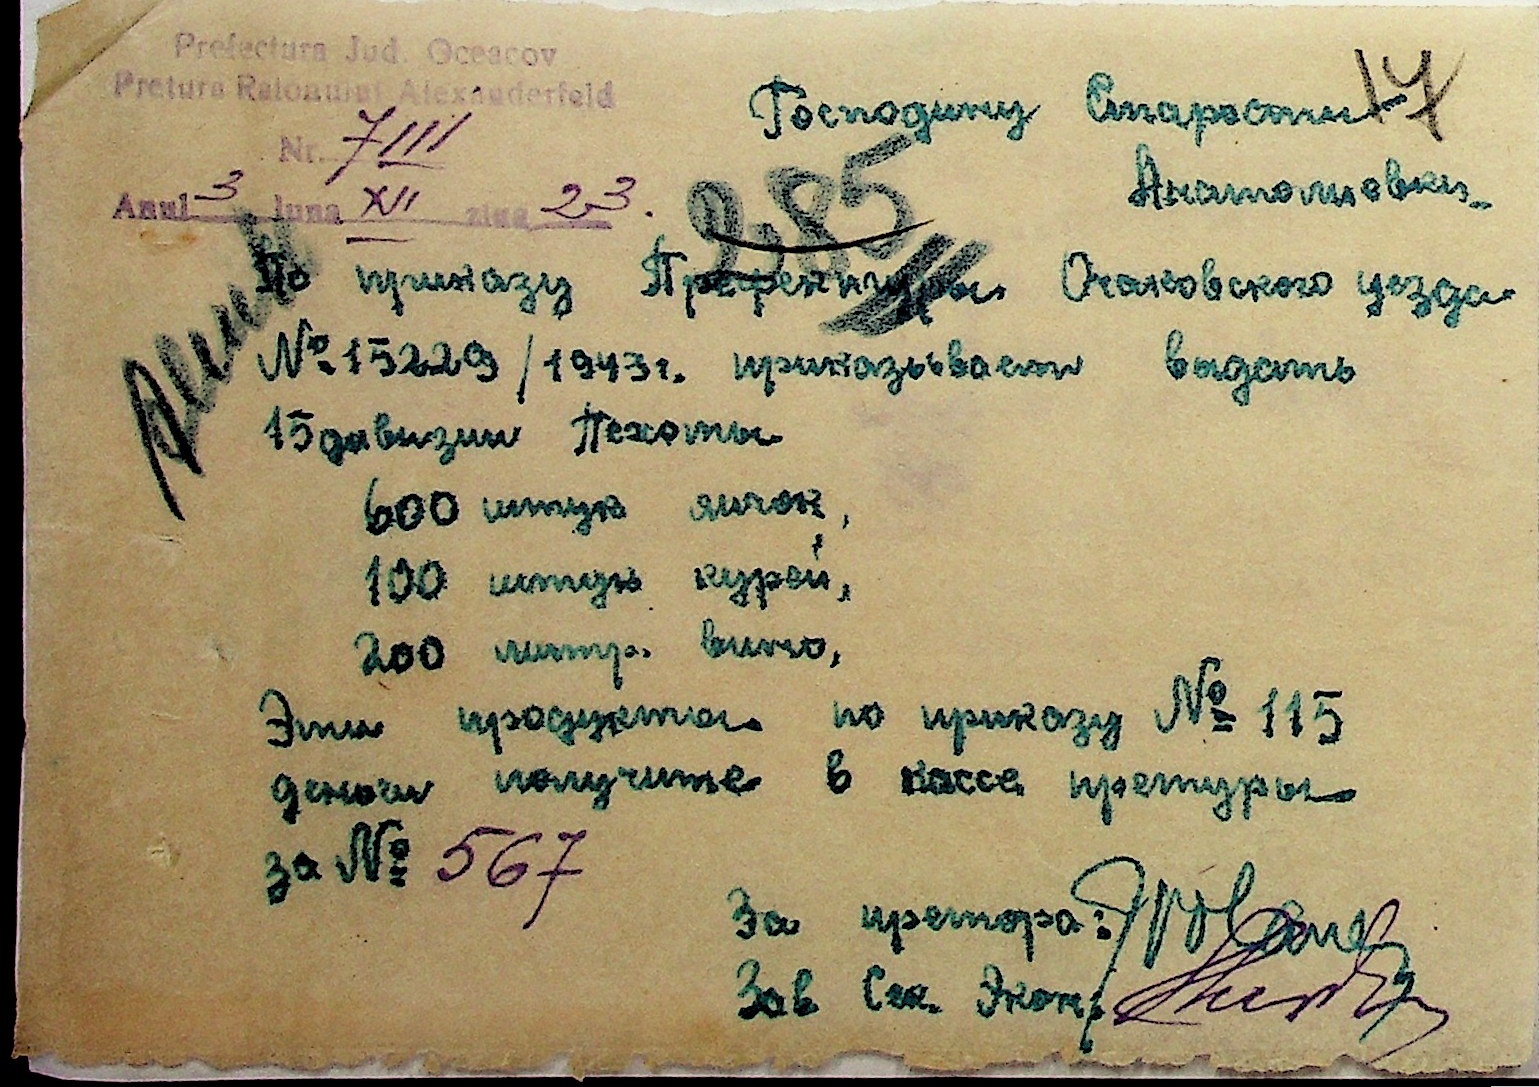 Prefectura Jud. Oceacov
Pretura Raionului Alexanderfeld
Nr. 7111
Anul 3 luna XII ziua 23.
17
285
Господину Старости
Анатолиовки
По приказу Префектуры Очаковского уезда
№ 15229/1943 г. приказывает выдать
15 дивизии Пехоты
600 штук яичок,
100 штук курей,
200 литр. вино,
Эти продукты по приказу № 115
деньги получите в кассе претуры
за № 567
За претора:
Зав Сек. Экон: